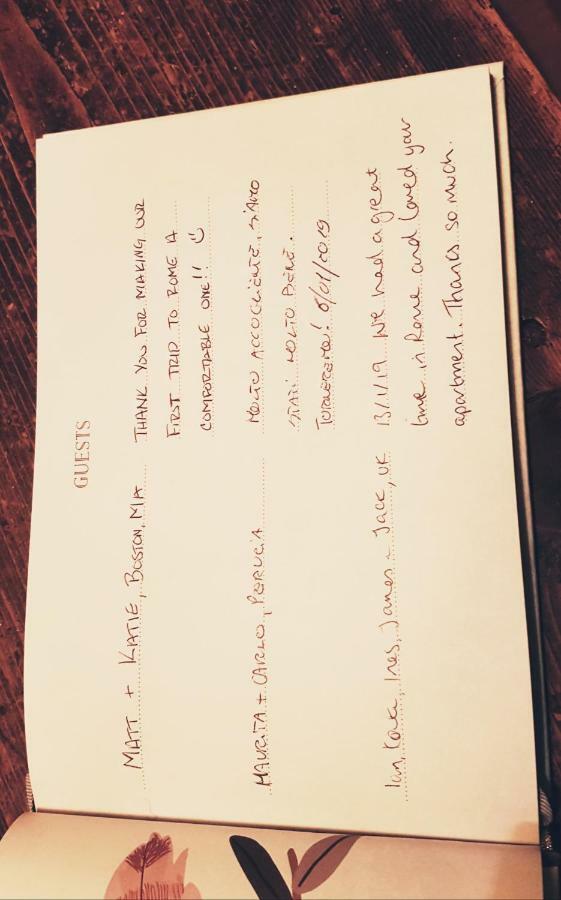 GUESTS
MATT + KATIE, BOSTON, MA THANK YOU FOR MAKING OUR
FIRST TRIP TO ROME A
COMFORTABLE ONE!! :)
CARLO, PERUGIA MOLTO ACCOGLIENTE, SIAMO
STATI MOLTO BENE.
TORNEREMO!
Ian, Ines, James - Jack, UK 13/1/19 We had a great
time in Rome and loved your
apartment. Thanks so much.